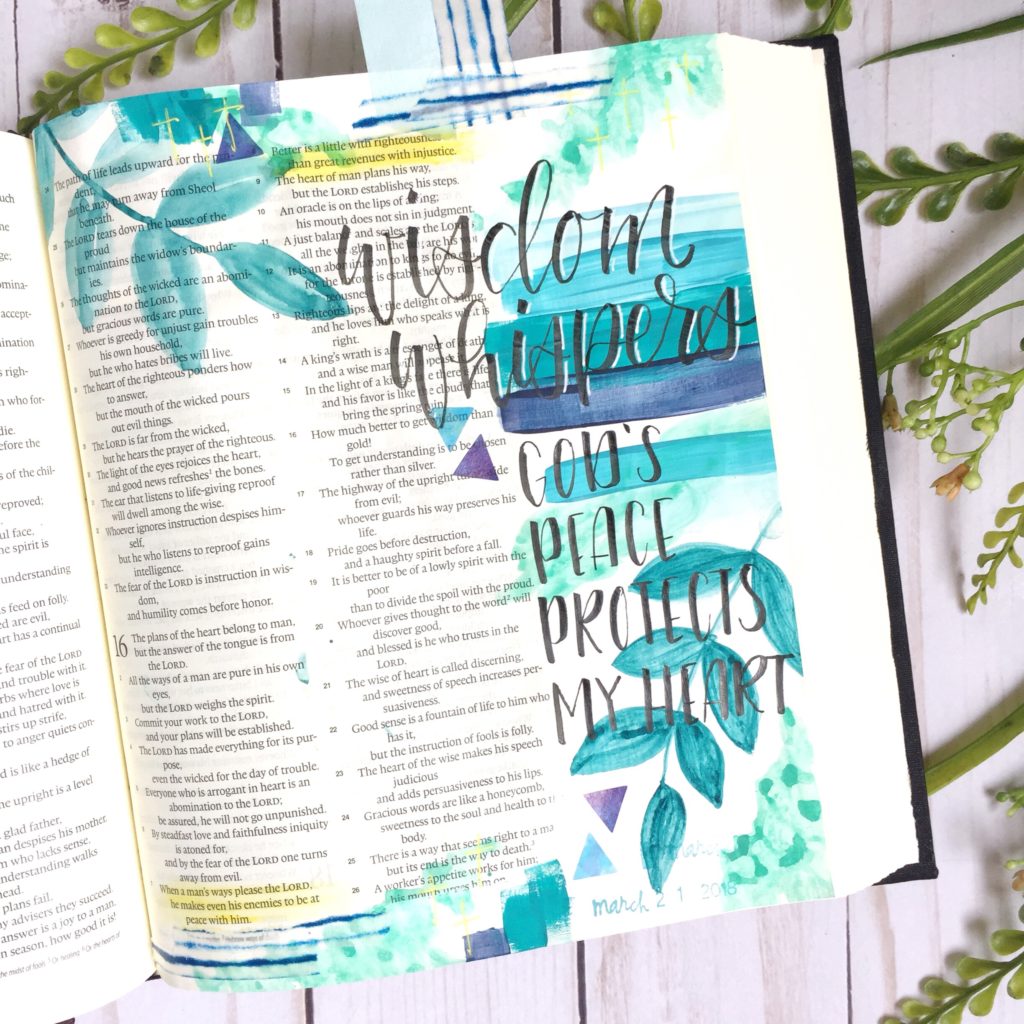 such
the
dge;
omina-
accept-
mination
s righ-
n who for-
die.
efore the
s of the chil-
reproved;
ul face,
he spirit is
understanding
s feed on folly.
ed are evil.
art has a continual
e fear of the LORD
and trouble with it.
rbs where love is
and hatred with it.
stirs up strife,
to anger quiets con-
d is like a hedge of
upright is a level
glad father,
an despises his mother.
m who lacks sense,
understanding walks
head.
plans fail,
y advisers they succeed.
answer is a joy to a man,
n season, how good it is!
24 The path of life leads upward for the pru-
dent,
that he may turn away from Sheol
beneath.
25 The LORD tears down the house of the
proud
but maintains the widow's boundar-
ies.
The thoughts of the wicked are an abomi-
nation to the LORD,
but gracious words are pure.
Whoever is greedy for unjust gain troubles
his own household,
but he who hates bribes will live.
The heart of the righteous ponders how
to answer,
but the mouth of the wicked pours
out evil things.
The LORD is far from the wicked,
but he hears the prayer of the righteous.
The light of the eyes rejoices the heart,
and good news refreshes the bones.
The ear that listens to life-giving reproof
will dwell among the wise.
Whoever ignores instruction despises him-
self,
but he who listens to reproof gains
intelligence.
The fear of the LORD is instruction in wis-
dom,
and humility comes before honor.
16 The plans of the heart belong to man,
but the answer of the tongue is from
the LORD.
All the ways of a man are pure in his own
eyes,
but the LORD weighs the spirit.
Commit your work to the LORD,
and your plans will be established.
The LORD has made everything for its pur-
pose,
even the wicked for the day of trouble.
Everyone who is arrogant in heart is an
abomination to the LORD;
be assured, he will not go unpunished.
By steadfast love and faithfulness iniquity
is atoned for,
and by the fear of the LORD one turns
away from evil.
When a man's ways please the LORD,
he makes even his enemies to be at
peace with him.
Better is a little with righteousness
than great revenues with injustice.
9 The heart of man plans his way,
but the LORD establishes his steps.
10 An oracle is on the lips of a king;
his mouth does not sin in judgment.
11 A just balance and scales are the LORD's;
all the weights in the bag are his work
12 It is an abomination to kings to do evil,
for the throne is established by righ-
teousness.
13 Righteous lips are the delight of a king,
and he loves him who speaks what is
right.
14 A king's wrath is a messenger of death,
and a wise man will appease it.
15 In the light of a king's face there is life,
and his favor is like the clouds that
bring the spring rain.
16 How much better to get wisdom than
gold!
To get understanding is to be chosen
rather than silver.
17 The highway of the upright turns aside
from evil;
whoever guards his way preserves his
life.
18 Pride goes before destruction,
and a haughty spirit before a fall.
19 It is better to be of a lowly spirit with the
poor
than to divide the spoil with the proud.
20 Whoever gives thought to the word² will
discover good,
and blessed is he who trusts in the
LORD.
21 The wise of heart is called discerning,
and sweetness of speech increases per-
suasiveness.
22 Good sense is a fountain of life to him who
has it,
but the instruction of fools is folly.
23 The heart of the wise makes his speech
judicious
and adds persuasiveness to his lips.
24 Gracious words are like a honeycomb,
sweetness to the soul and health to
body.
25 There is a way that seems right to a ma
but its end is the way to death.
26 A worker's appetite works for him;
his mouth urges him on
wisdom
whispers
GOD'S
PEACE
PROTECTS
MY HEART
march 21 2018